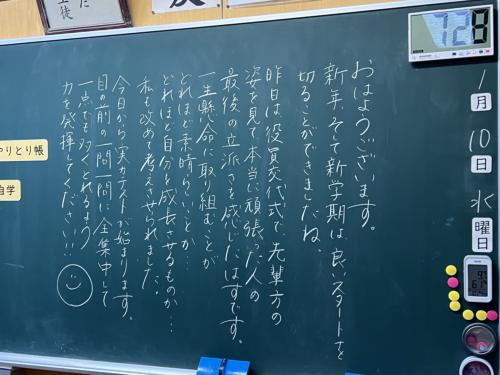 1月10日水曜日
おはようございます。
新年、そして新学期は良いスタートを
切ることができましたね。
昨日は役員交代式で、先輩方の
姿を見て本当に頑張った人の
最後の立派さを感じたはずです。
一生懸命に取り組むことが
どれほど素晴らしいことか…
どれほど自分を成長させるものか…
私も改めて考えさせられました。
今日から実力テストが始まります。
目の前の一問一問に全集中して
一点でも多くとれるよう
力を発揮してください!!
やりとり帳
自学
728
生徒